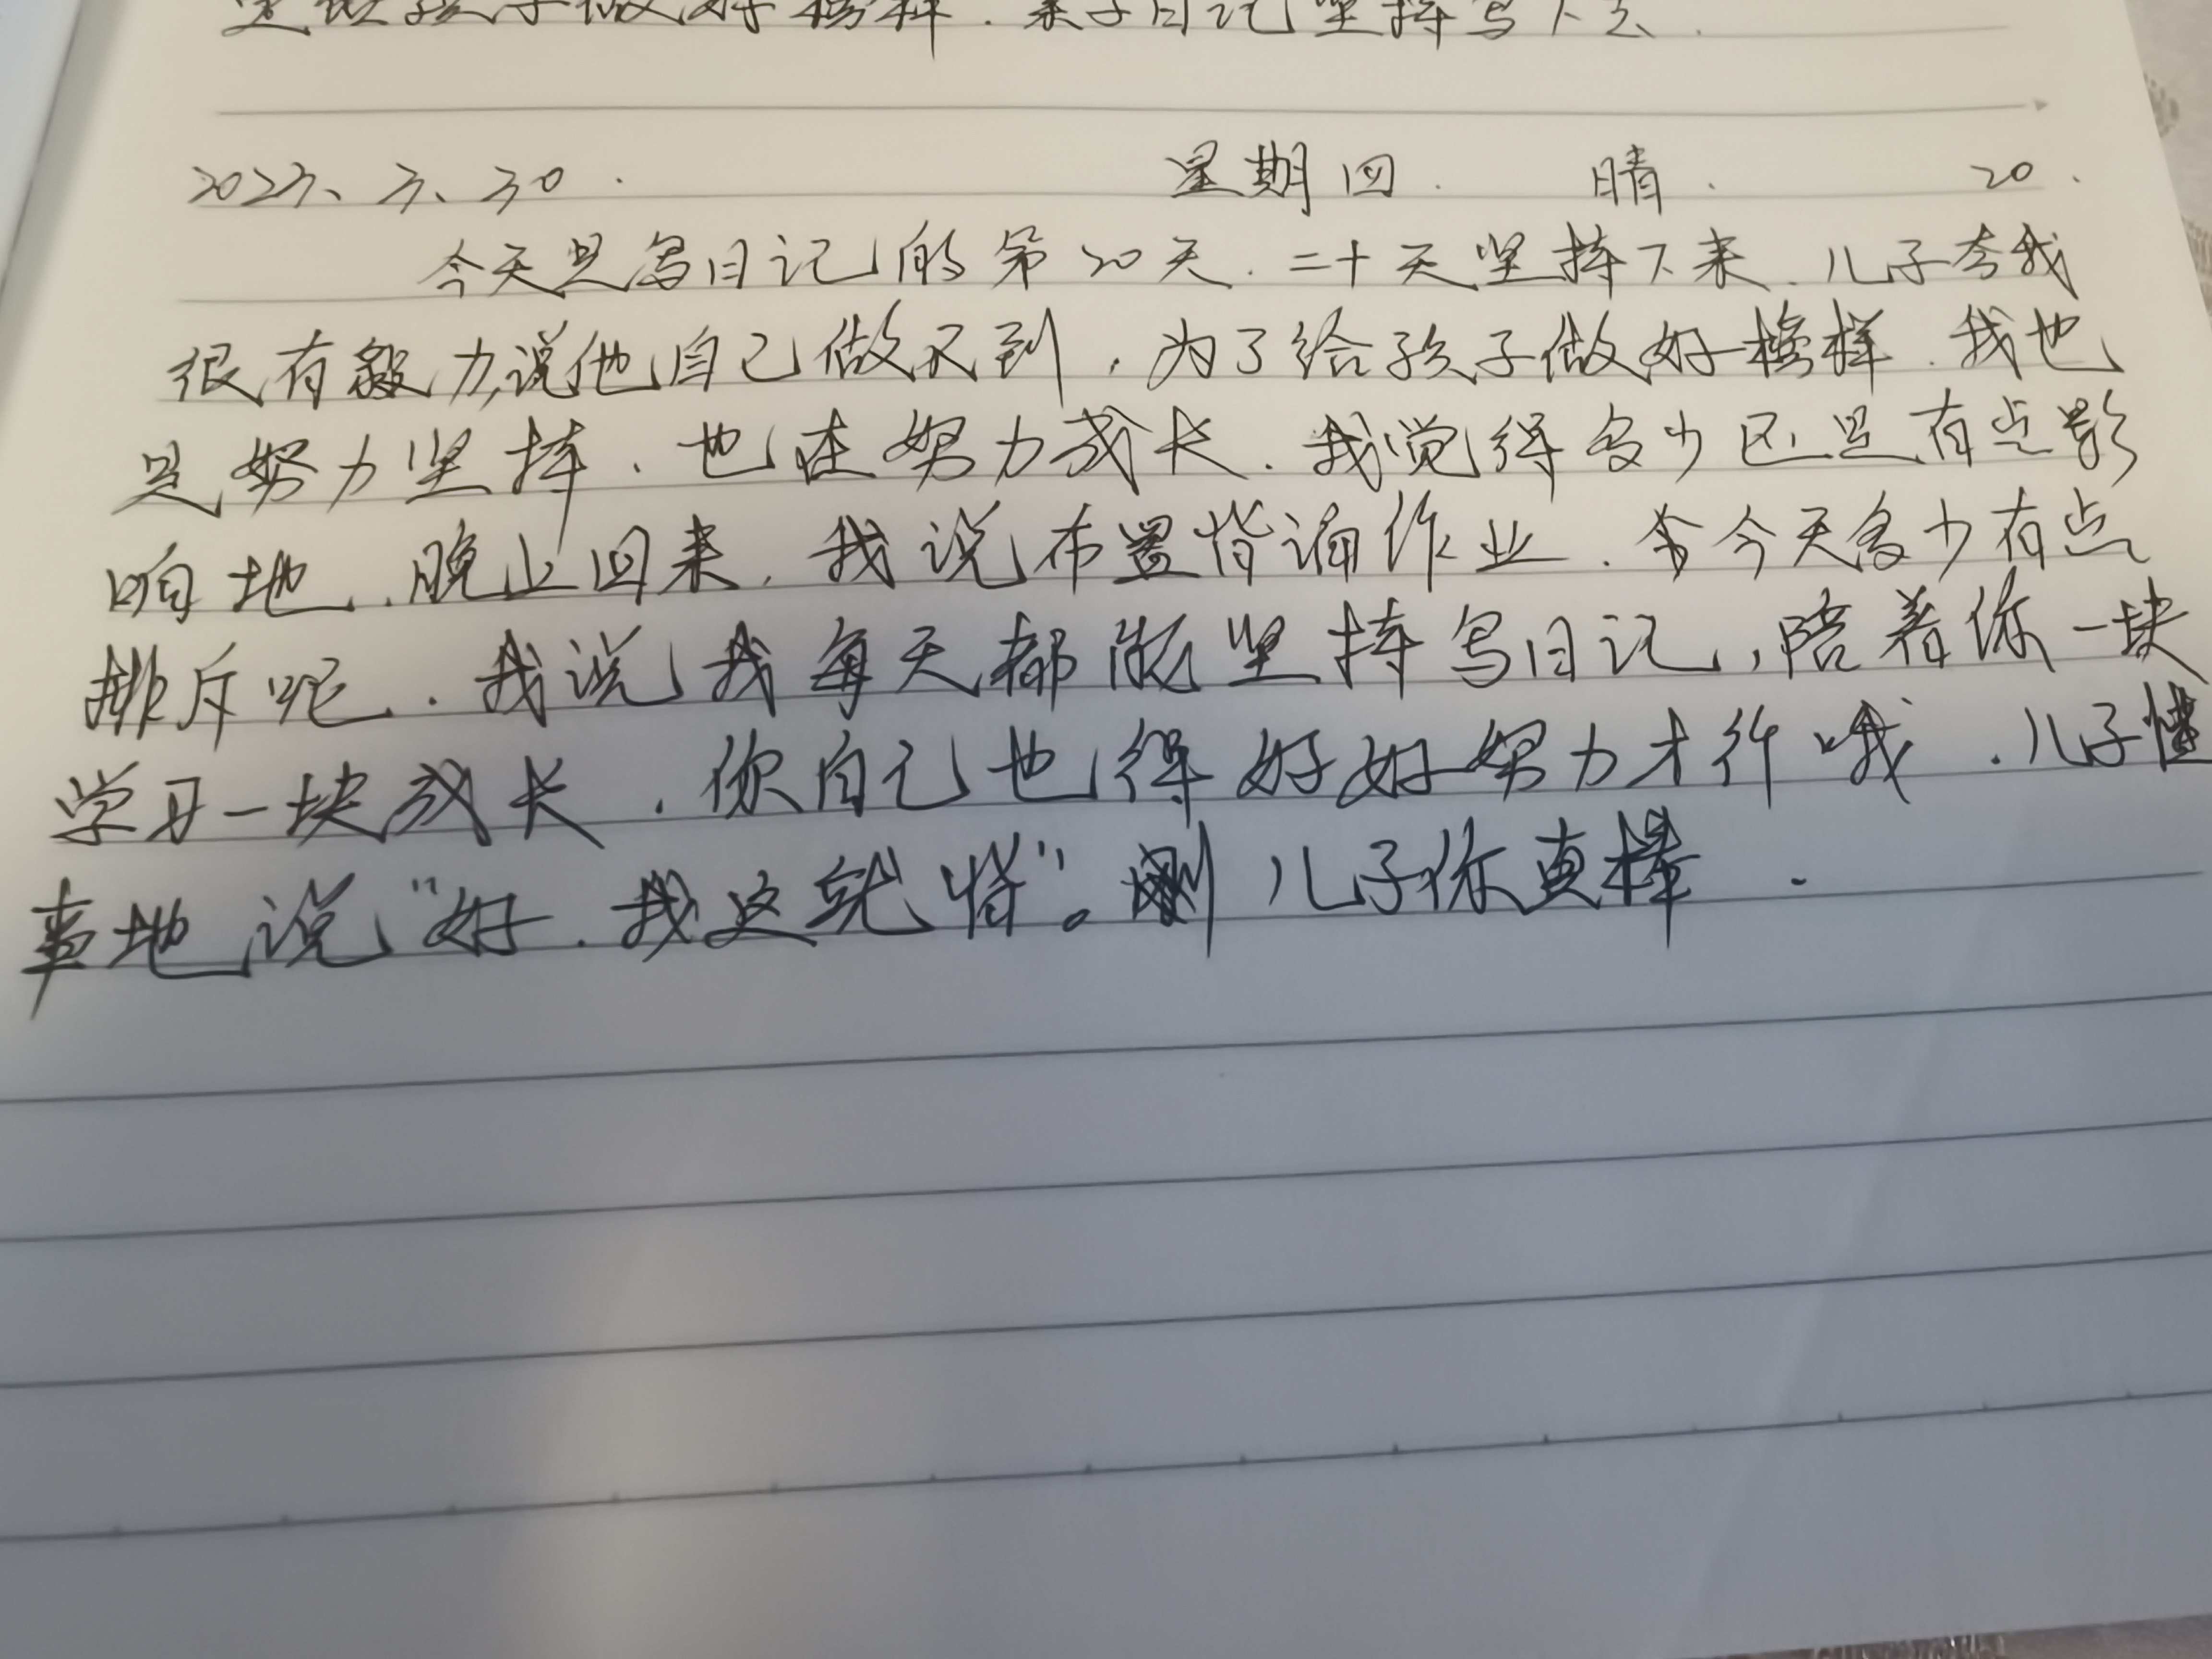 给孩子做好榜样.亲子日记坚持写下去.
2023、3、30. 星期四. 晴. 20.
今天是写日记的第20天.二十天坚持下来.儿子夸我
很有毅力,说他自己做不到,为了给孩子做好榜样.我也
是努力坚持.也在努力成长.我觉得多少还是有点影
响地.晚上回来.我说布置背诵作业.今天多少有点
排斥呢.我说我每天都能坚持写日记,陪着你一块
学习一块成长.你自己也得好好努力才行哦.儿子懂
事地说"好.我这就背"。儿子你真棒.